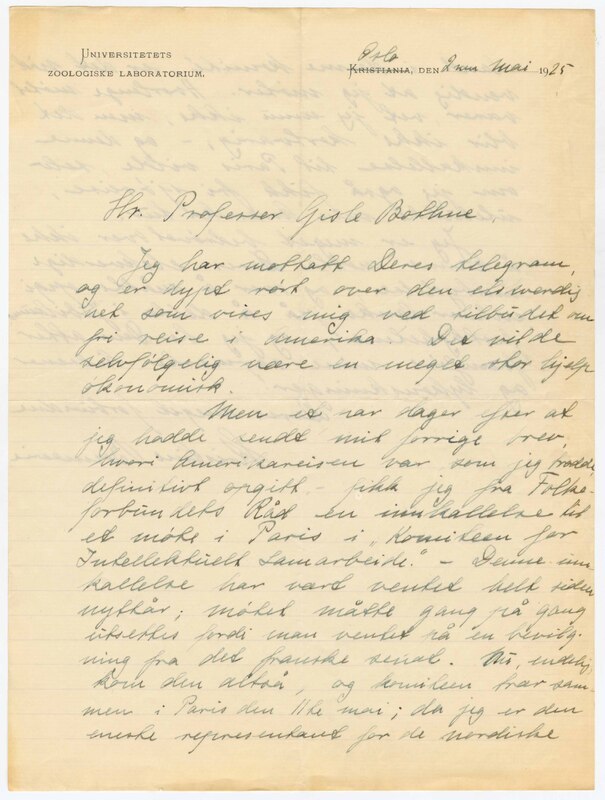 UNIVERSITETETS
ZOOLOGISKE LABORATORIUM.
Oslo
KRISTIANIA, DEN 2nen Mai 1925
Hr. Professer Gisle Bothne,
Jeg har mottatt Deres telegram,
og er dypt rørt over den elsverdig
het som vises mig ved tilbudet om
fri reise i Amerika. Det vilde
selvfølgelig være en meget stor hjelp
økonomisk.
Men et par dager efter at
jeg hadde sendt mit forrige brev,
hvori Amerikareisen var som jeg trodde
definitivt opgitt fikk jeg fra Folke-
forbundets Råd en innkallelse til
et møte i Paris i "Komiteen for
Intellektuelt Samarbeide." – Denne inn-
kallelse har vært ventet helt siden
nyttår; møtet måtte gang på gang
utsettes fordi man ventet på en bevilg-
ning fra det franske senat. Nu, endelig,
kom den altså, og komiteen trær sam-
men i Paris den 11te mai; da jeg er den
eneste representant for de nordiske